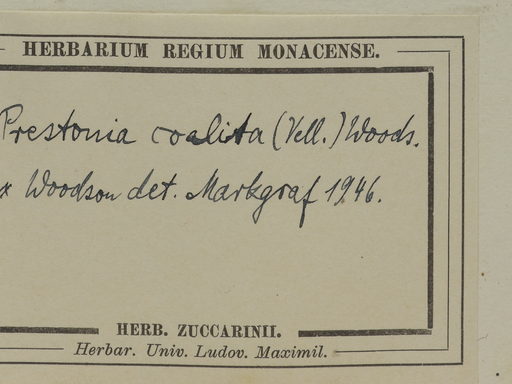 HERBARIUM REGIUM MONACENSE.
Prestonia coalita (Vell.) Woods.
x Woodson det. Markgraf 1946.
HERB. ZUCCARINII.
Herbar. Univ. Ludov. Maximil.